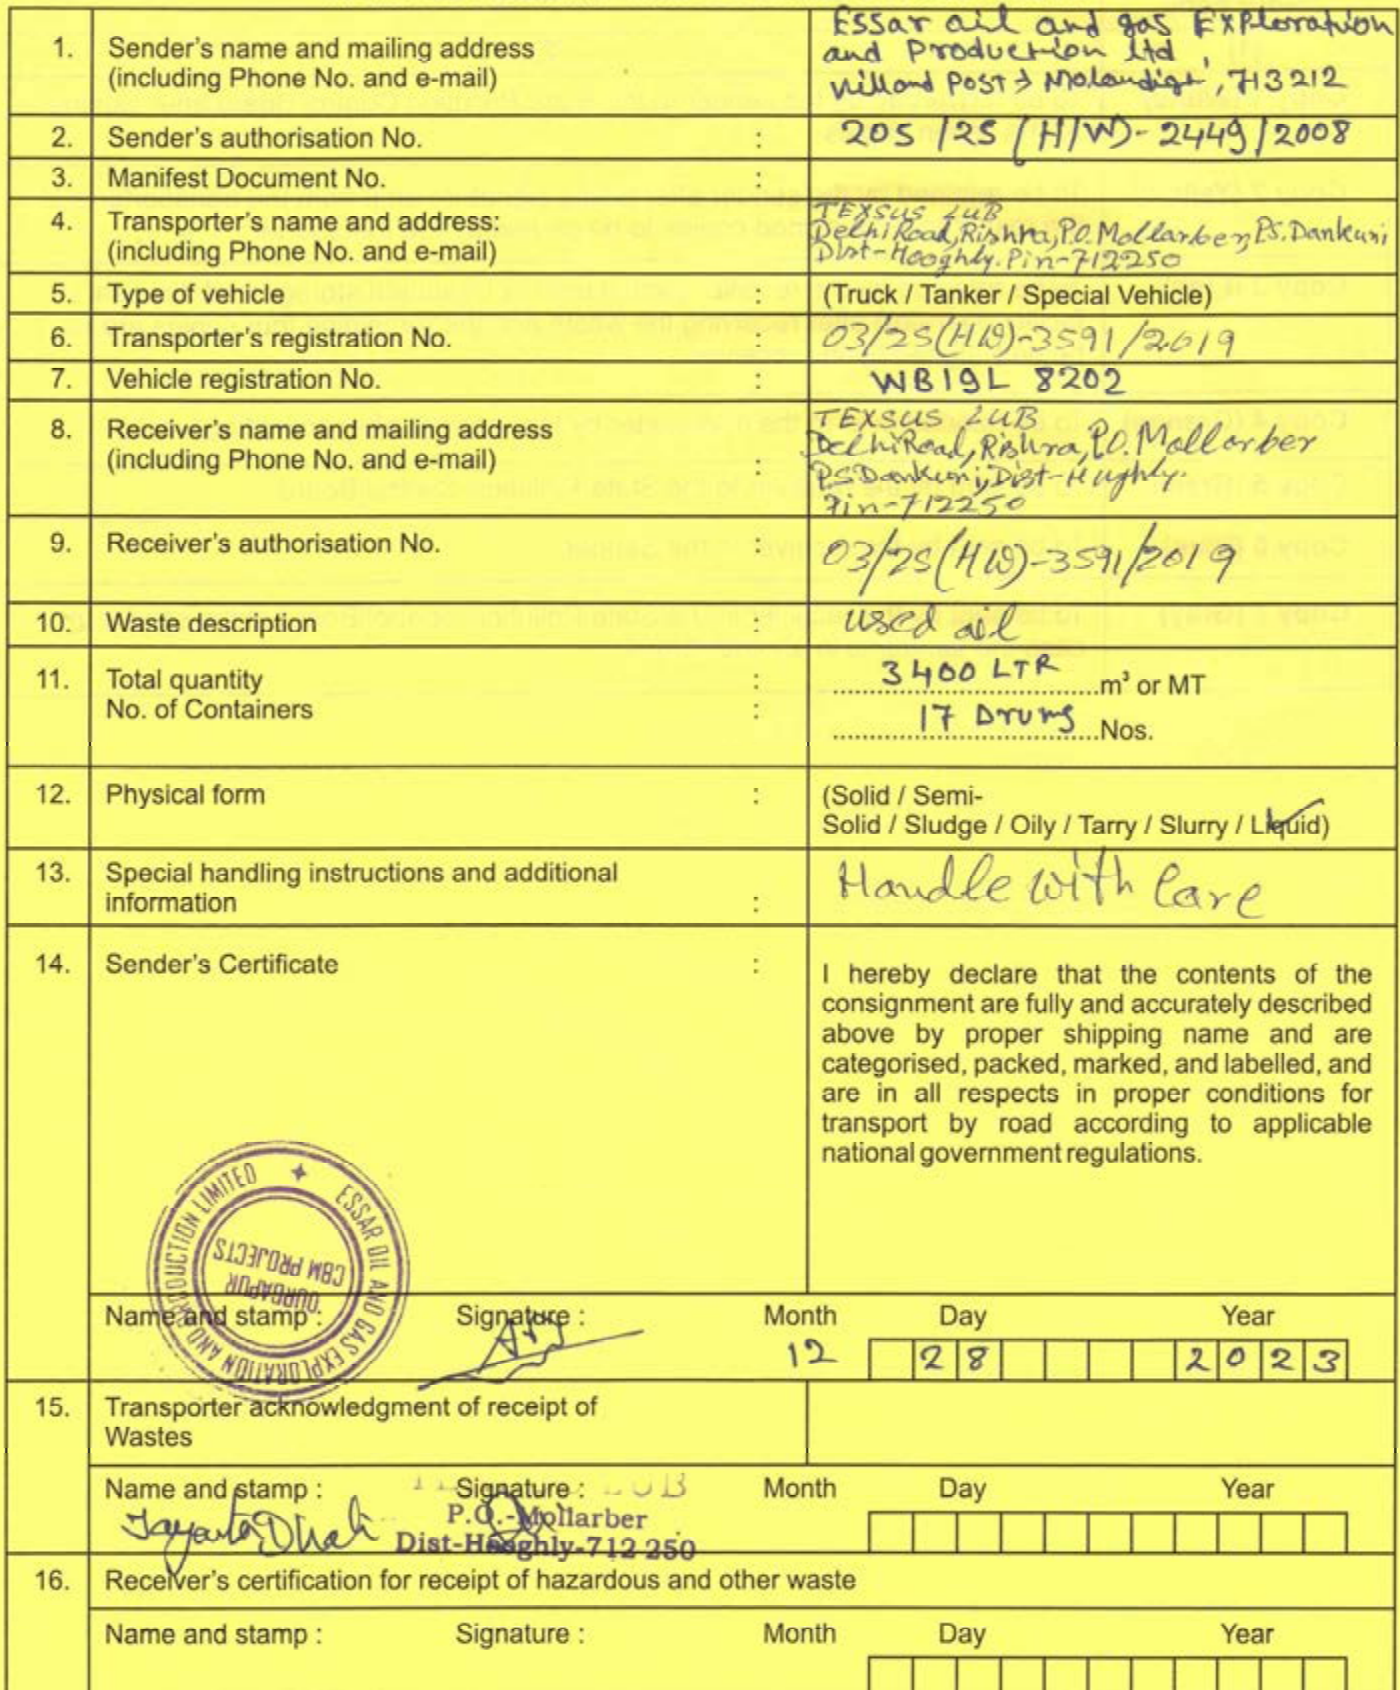 1. Sender's name and mailing address
(including Phone No. and e-mail)
Essar oil and gas Exploration
and Production Ltd,
vill and Post → Molandighi, 713212
2. Sender's authorisation No. : 205/2S (H/W)-2449/2008
3. Manifest Document No. :
4. Transporter's name and address:
(including Phone No. and e-mail)
TEXSUS LUB
Delhi Road, Rishra, P.O. Mollarber, P.S. Dankuni
Dist-Hooghly. Pin-712250
5. Type of vehicle : (Truck / Tanker / Special Vehicle)
6. Transporter's registration No. : 03/2S(HW)-3591/2019
7. Vehicle registration No. : WB19L 8202
8. Receiver's name and mailing address
(including Phone No. and e-mail) :
TEXSUS LUB
Delhi Road, Rishra, P.O. Mollarber
P.S Dankuni, Dist-Hughly.
Pin-712250
9. Receiver's authorisation No. : 03/2S(HW)-3591/2019
10. Waste description : used oil
11. Total quantity : 3400 LTR m³ or MT
No. of Containers : 17 Drums Nos.
12. Physical form : (Solid / Semi-
Solid / Sludge / Oily / Tarry / Slurry / Liquid)
13. Special handling instructions and additional
information : Handle with Care
14. Sender's Certificate :
I hereby declare that the contents of the
consignment are fully and accurately described
above by proper shipping name and are
categorised, packed, marked, and labelled, and
are in all respects in proper conditions for
transport by road according to applicable
national government regulations.
ESSAR OIL AND GAS EXPLORATION AND PRODUCTION LIMITED
DURGAPUR
CBM PROJECTS
Name and stamp : Signature : Month Day Year
12 28 2023
15. Transporter acknowledgment of receipt of
Wastes
Name and stamp : Signature : Month Day Year
LUB
P.O.-Mollarber
Dist-Hooghly-712 250
16. Receiver's certification for receipt of hazardous and other waste
Name and stamp : Signature : Month Day Year